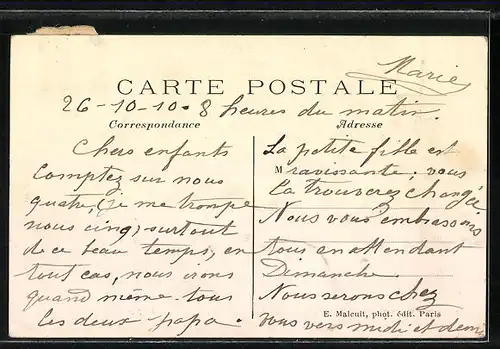 Marie
CARTE POSTALE
26-10-10. 8 heures du matin.
Correspondance
Adresse
Chers enfants
Comptez sur nous
quatre, (je me trompe
nous cinq) surtout
de ce beau temps, en
tout cas, nous irons
quand même tous
les deux papa.
La petite fille est
M ravissante, vous
la trouverez changée
Nous vous embrassons
tous en attendant
Dimanche.
Nous serons chez
E. Malcuit, phot. édit. Paris
vous vers midi et demi